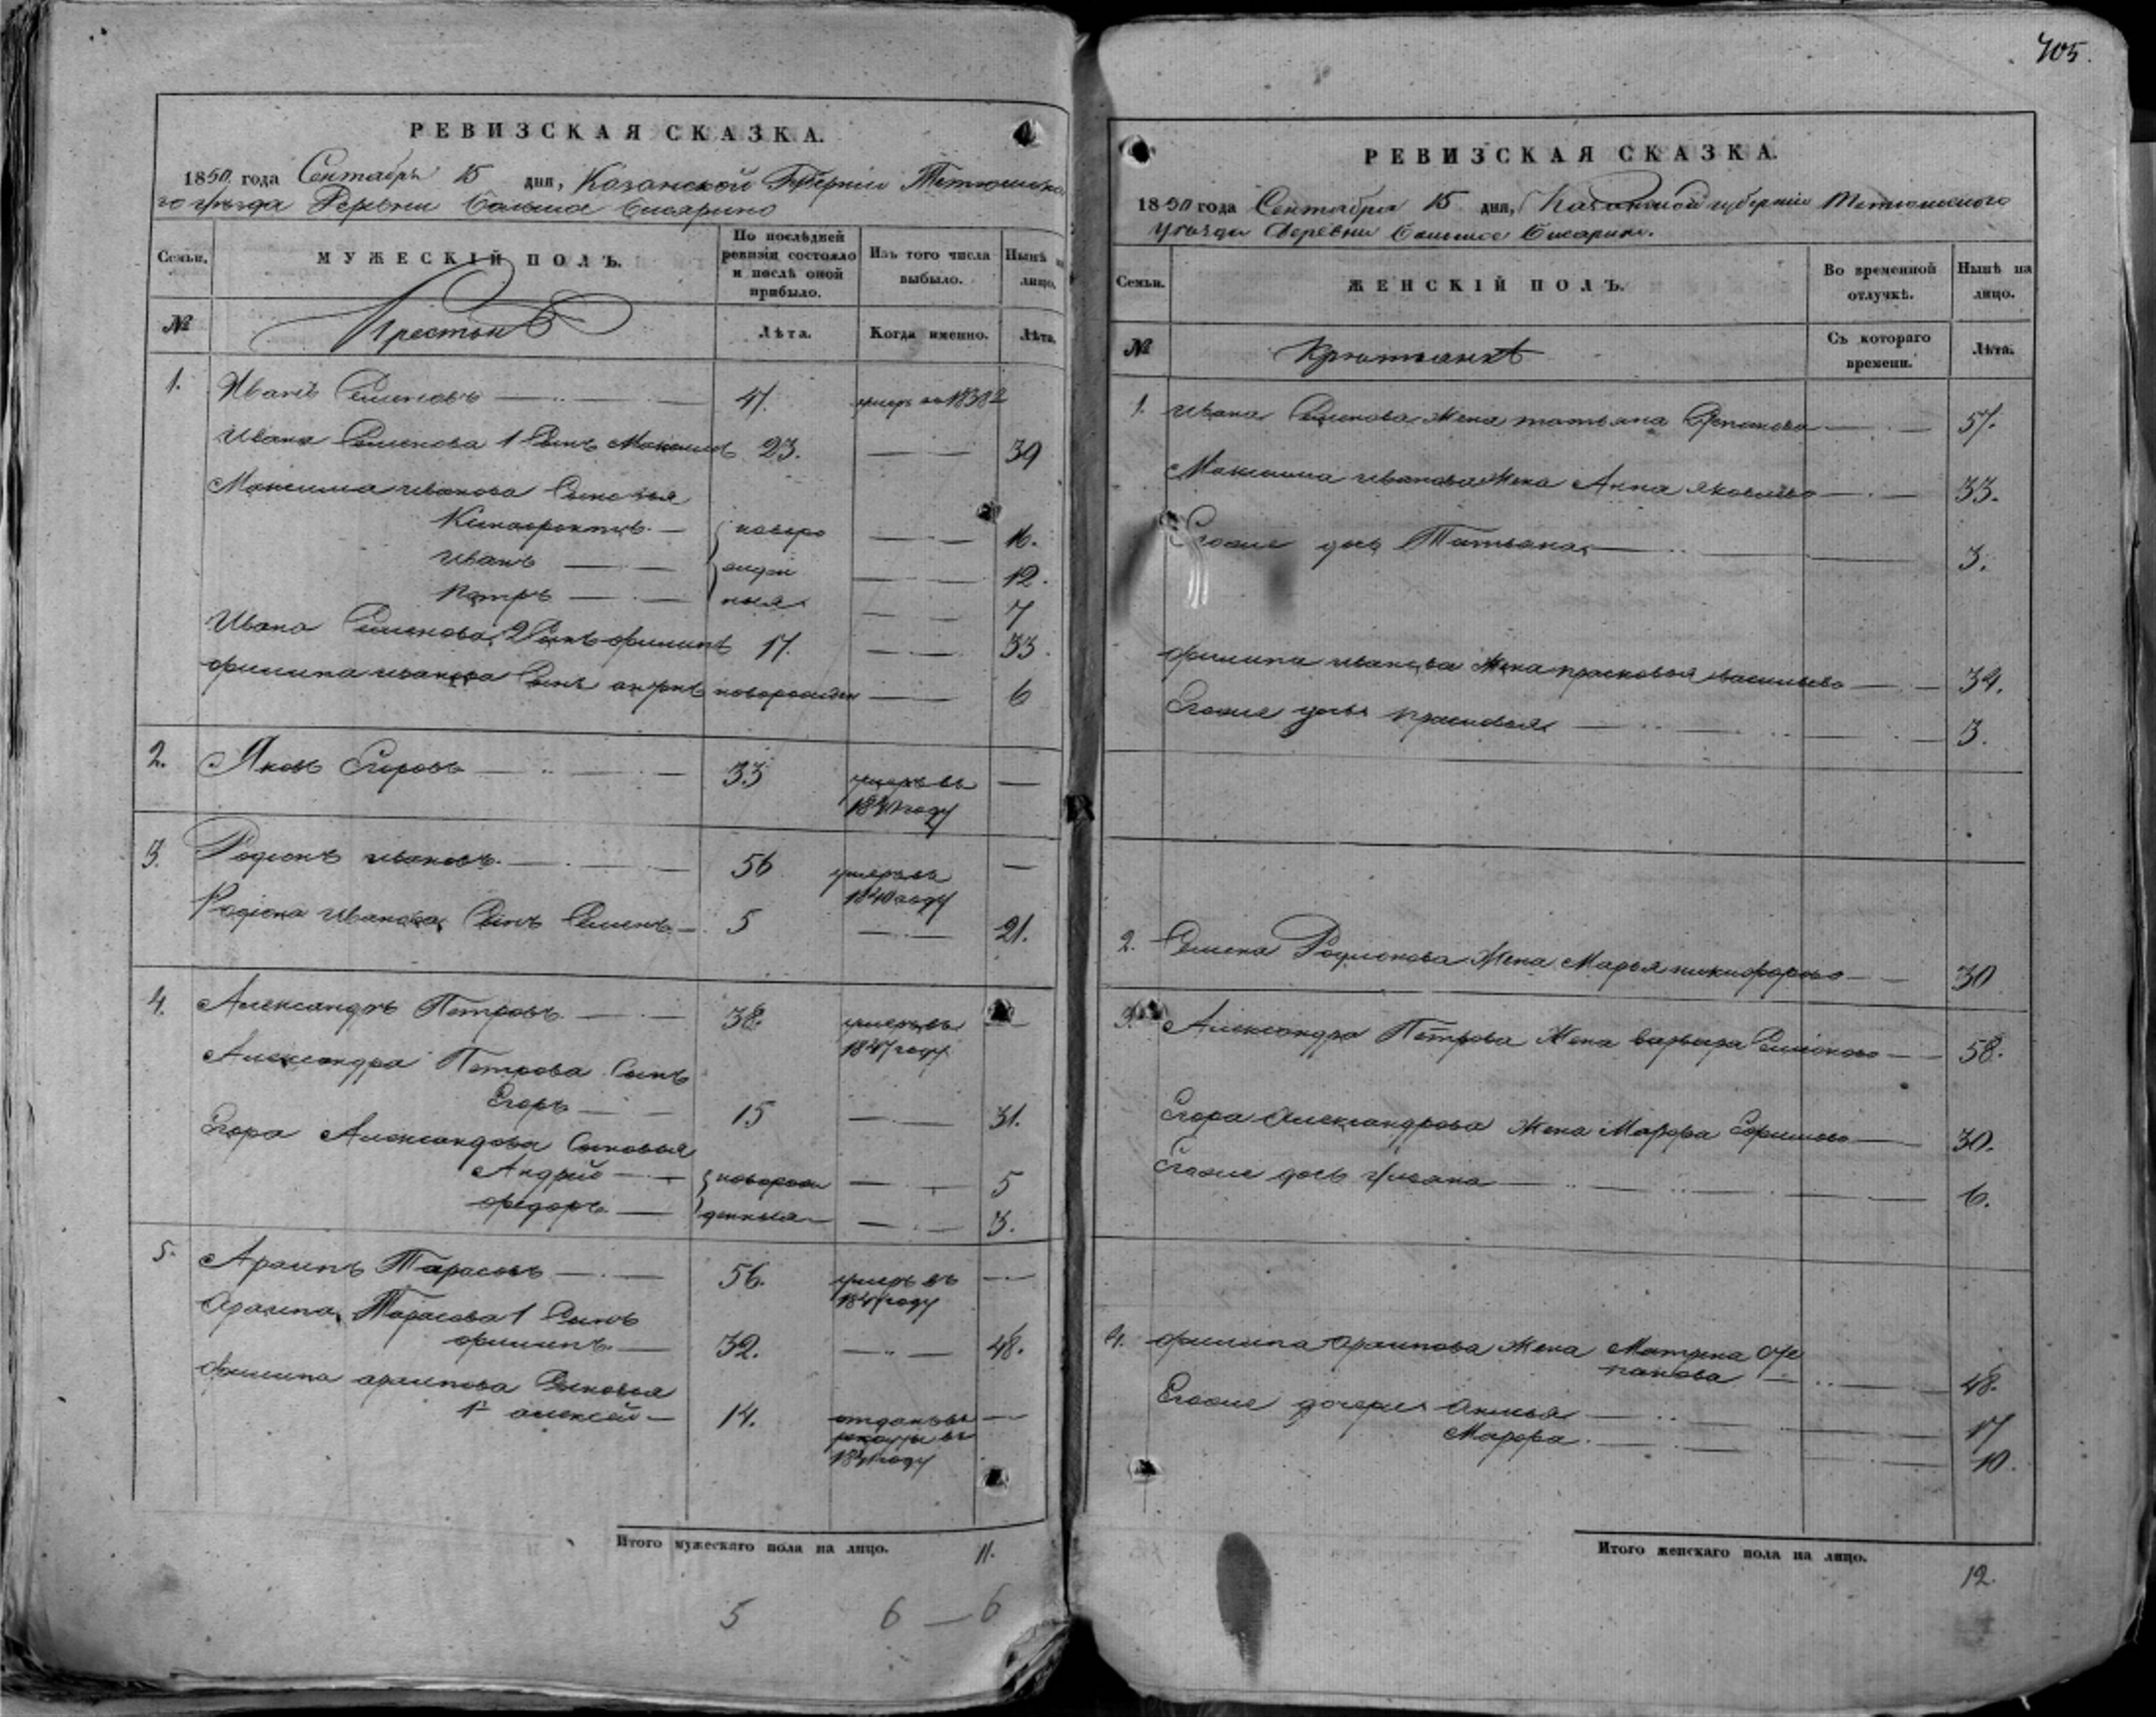 705.
РЕВИЗСКАЯ СКАЗКА.
1850 года Сентября 15 дня, Казанской Губерніи Тетюшска
го уѣзда Деревни
Семьи. МУЖЕСКІЙ ПОЛЪ. По послѣдней ревизіи состояло и послѣ оной прибыло. Изъ того числа выбыло. Нынѣ на лицо.
№ Крестьян Лѣта. Когда именно. Лѣта.
1. Иванъ Семеновъ 47. умеръ въ 1838
Ивана Семенова 1 Сынъ Максимъ 23. 39
Максима Иванова Сыновья
16.
Иванъ 12.
Петръ 7
Ивана Семенова 2 Сынъ Филипъ 17. 33.
Филипа Иванова Сынъ новорожден 6
2. Яковъ Егоровъ 33 умеръ въ
году
3. Родіонъ Ивановъ 56 умеръ въ
1840 году
Родіона Иванова Сынъ Семенъ 5 21.
4. Александръ Петровъ 38. умеръ въ
1847 году
Александра Петрова Сынъ
Егоръ 15 31.
Егора Александрова Сыновья
Андрей новорож 5
Федоръ денныя 3.
5. Архипъ Тарасовъ 56. умеръ въ
году
Архипа Тарасова 1 Сынъ
Филипъ 32. 48.
Филипа Архипова Сыновья
1й Алексей 14. отданъ въ
рекруты въ
году
Итого мужескаго пола на лицо. 11.
5 6 — 6
РЕВИЗСКАЯ СКАЗКА.
1850 года Сентября 15 дня, Казанской губерніи Тетюшского
Уѣзда Деревни
Семьи. ЖЕНСКІЙ ПОЛЪ. Во временной отлучкѣ. Нынѣ на лицо.
№ Крестьянкѣ Съ котораго времени. Лѣта.
1. Ивана Семенова Жена Татьяна Степанова 57.
Максима Иванова Жена Анна Яковлева 33.
Егоже дочь Татьяна 3.
Филипа Иванова Жена Прасковья Васильева 34.
Егоже дочь Прасковья 3.
2. Семена Родионова Жена Марья Никифорова 30
3. Александра Петрова Жена Варвара Семионова 58.
Егора Александрова Жена Марфа Ефимова 30.
Егоже дочь Ульяна 6.
4. Филипа Архипова Жена Матрена Сте
панова 48.
Егоже дочери Акилья 17
Марфа 10.
Итого женскаго пола на лицо.
12.